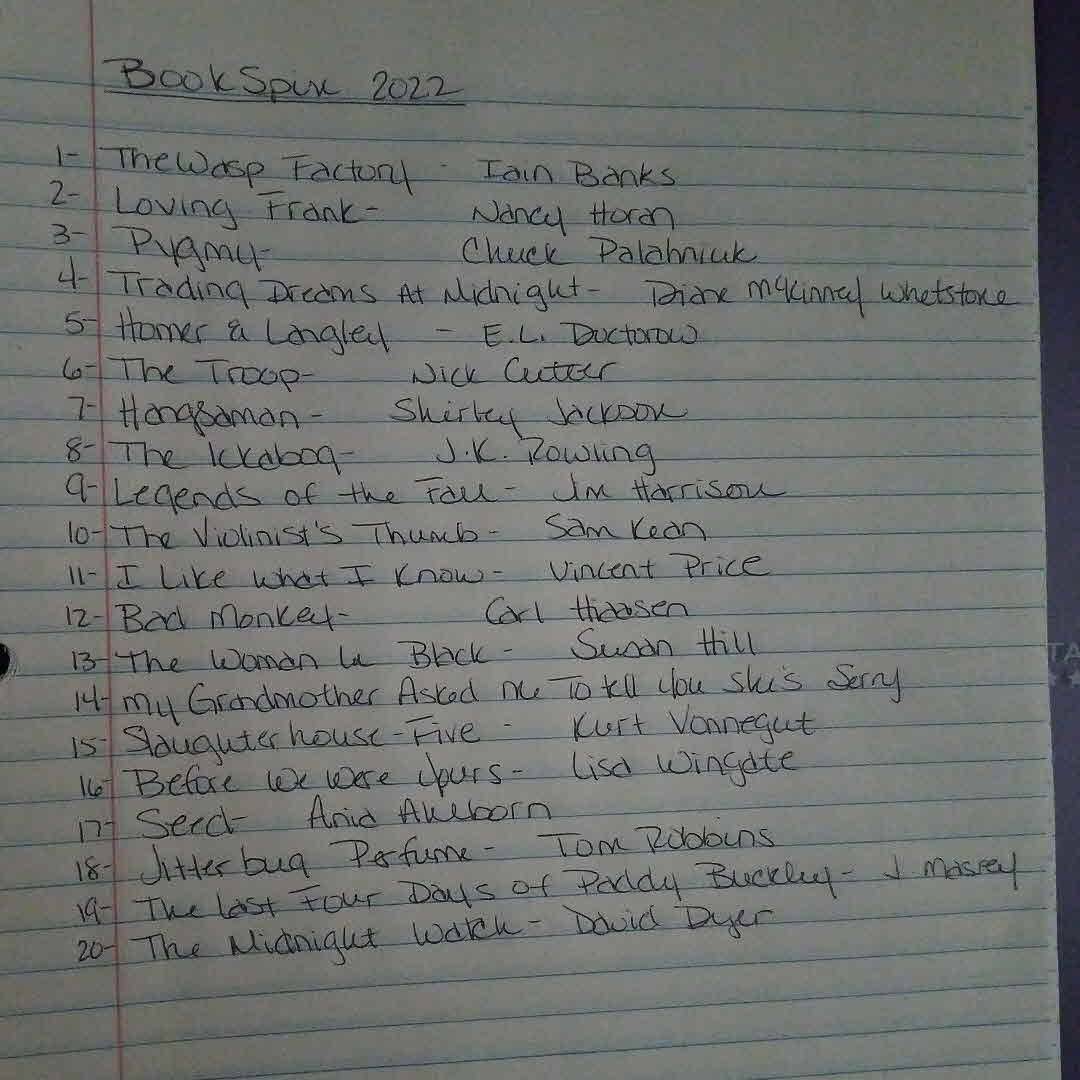 BookSpin 2022
1- The Wasp Factory - Iain Banks
2- Loving Frank - Nancy Horan
3- Pygmy - Chuck Palahniuk
4- Trading Dreams At Midnight - Diane McKinney Whetstone
5- Homer & Langley - E.L. Doctorow
6- The Troop - Nick Cutter
7- Hangsaman - Shirley Jackson
8- The Ickabog - J.K. Rowling
9- Legends of the Fall - Jim Harrison
10- The Violinist's Thumb - Sam Kean
11- I Like what I Know - Vincent Price
12- Bad Monkey - Carl Hiaasen
13- The Woman In Black - Susan Hill
14- My Grandmother Asked me To tell you she's Sorry
15- Slaughterhouse-Five - Kurt Vonnegut
16- Before We Were Yours - Lisa Wingate
17- Seed - Ania Ahlborn
18- Jitterbug Perfume - Tom Robbins
19- The Last Four Days of Paddy Buckley - J Massey
20- The Midnight Watch - David Dyer
TA